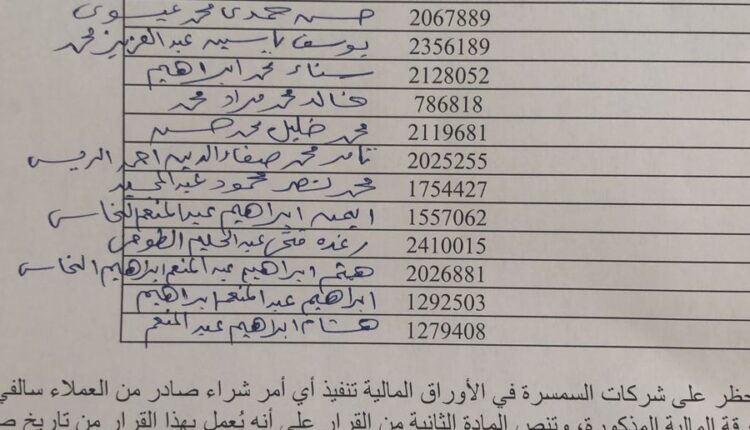 حسن حمدى محمد عيسوى 2067889
يوسف ياسين عبد العزيز محمد 2356189
سناء محمد ابراهيم 2128052
خالد محمد مراد محمد 786818
محمد خليل محمد حسن 2119681
تامر محمد صفاء الدين احمد الريس 2025255
محمد نصر محمود عبد المجيد 1754427
ايمن ابراهيم عبد المنعم النحاس 1557062
رغده فتحى عبد الحليم 2410015
هيثم ابراهيم عبد المنعم ابراهيم النحاس 2026881
ابراهيم عبد المنعم ابراهيم 1292503
هشام ابراهيم عبد المنعم 1279408
حظر على شركات السمسرة في الأوراق المالية تنفيذ أي أمر شراء صادر من العملاء سالفي
رقة المالية المذكورة، وتنص المادة الثانية من القرار على أنه يُعمل بهذا القرار من تاريخ